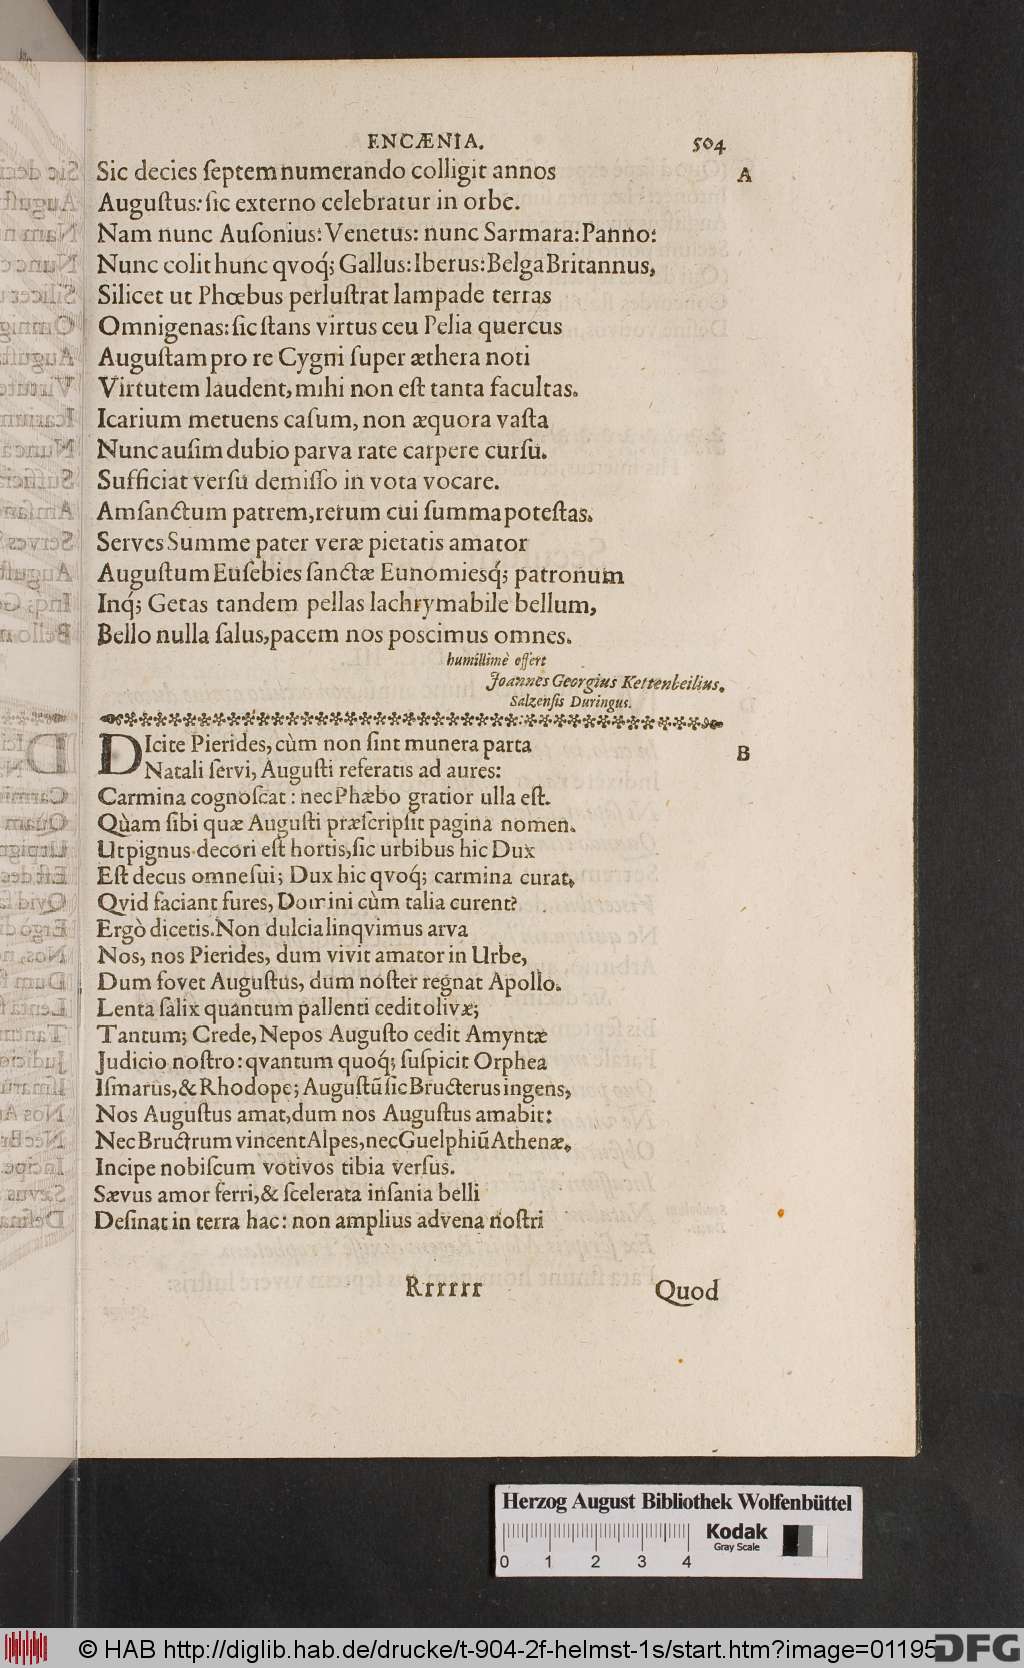 ENCÆNIA. 504
Sic decies ſeptem numerando colligit annos A
Auguſtus: ſic externo celebratur in orbe.
Nam nunc Auſonius: Venetus: nunc Sarmara: Panno:
Nunc colit hunc qvoq́; Gallus: Iberus: Belga Britannus,
Silicet ut Phœbus perluſtrat lampade terras
Omnigenas: ſic ſtans virtus ceu Pelia quercus
Auguſtam pro re Cygni ſuper æthera noti
Virtutem laudent, mihi non eſt tanta facultas.
Icarium metuens caſum, non æquora vaſta
Nunc auſim dubio parva rate carpere curſū.
Sufficiat verſū demiſſo in vota vocare.
Amſanctum patrem, rerum cui ſumma poteſtas.
Serves Summe pater veræ pietatis amator
Auguſtum Euſebies ſanctæ Eunomiesq́; patronum
Inq́; Getas tandem pellas lachrymabile bellum,
Bello nulla ſalus, pacem nos poscimus omnes.
humillimè offert
Joannes Georgius Kettenbeilius.
Salzenſis Duringus.
DIcite Pierides, cùm non ſint munera parta B
Natali ſervi, Auguſti referatis ad aures:
Carmina cognoſcat: nec Phæbo gratior ulla eſt.
Qùam ſibi quæ Auguſti præſcripſit pagina nomen.
Ut pignus decori eſt hortis, ſic urbibus hic Dux
Eſt decus omne ſui; Dux hic qvoq́; carmina curat,
Qvid faciant fures, Domini cùm talia curent?
Ergò dicetis. Non dulcia linqvimus arva
Nos, nos Pierides, dum vivit amator in Urbe,
Dum fovet Auguſtus, dum noſter regnat Apollo.
Lenta ſalix quantum pallenti cedit olivæ;
Tantum; Crede, Nepos Auguſto cedit Amyntæ
Judicio noſtro: qvantum quoq́; ſuſpicit Orphea
Iſmarus, & Rhodope; Auguſtū ſic Bructerus ingens,
Nos Auguſtus amat, dum nos Auguſtus amabit:
Nec Bructrum vincent Alpes, nec Guelphiū Athenæ.
Incipe nobiſcum votivos tibia verſus.
Sævus amor ferri, & ſcelerata inſania belli
Deſinat in terra hac: non amplius advena noſtri
Rrrrrr Quod
Herzog August Bibliothek Wolfenbüttel
Kodak
Gray Scale
0 1 2 3 4
© HAB http://diglib.hab.de/drucke/t-904-2f-helmst-1s/start.htm?image=01195
DFG